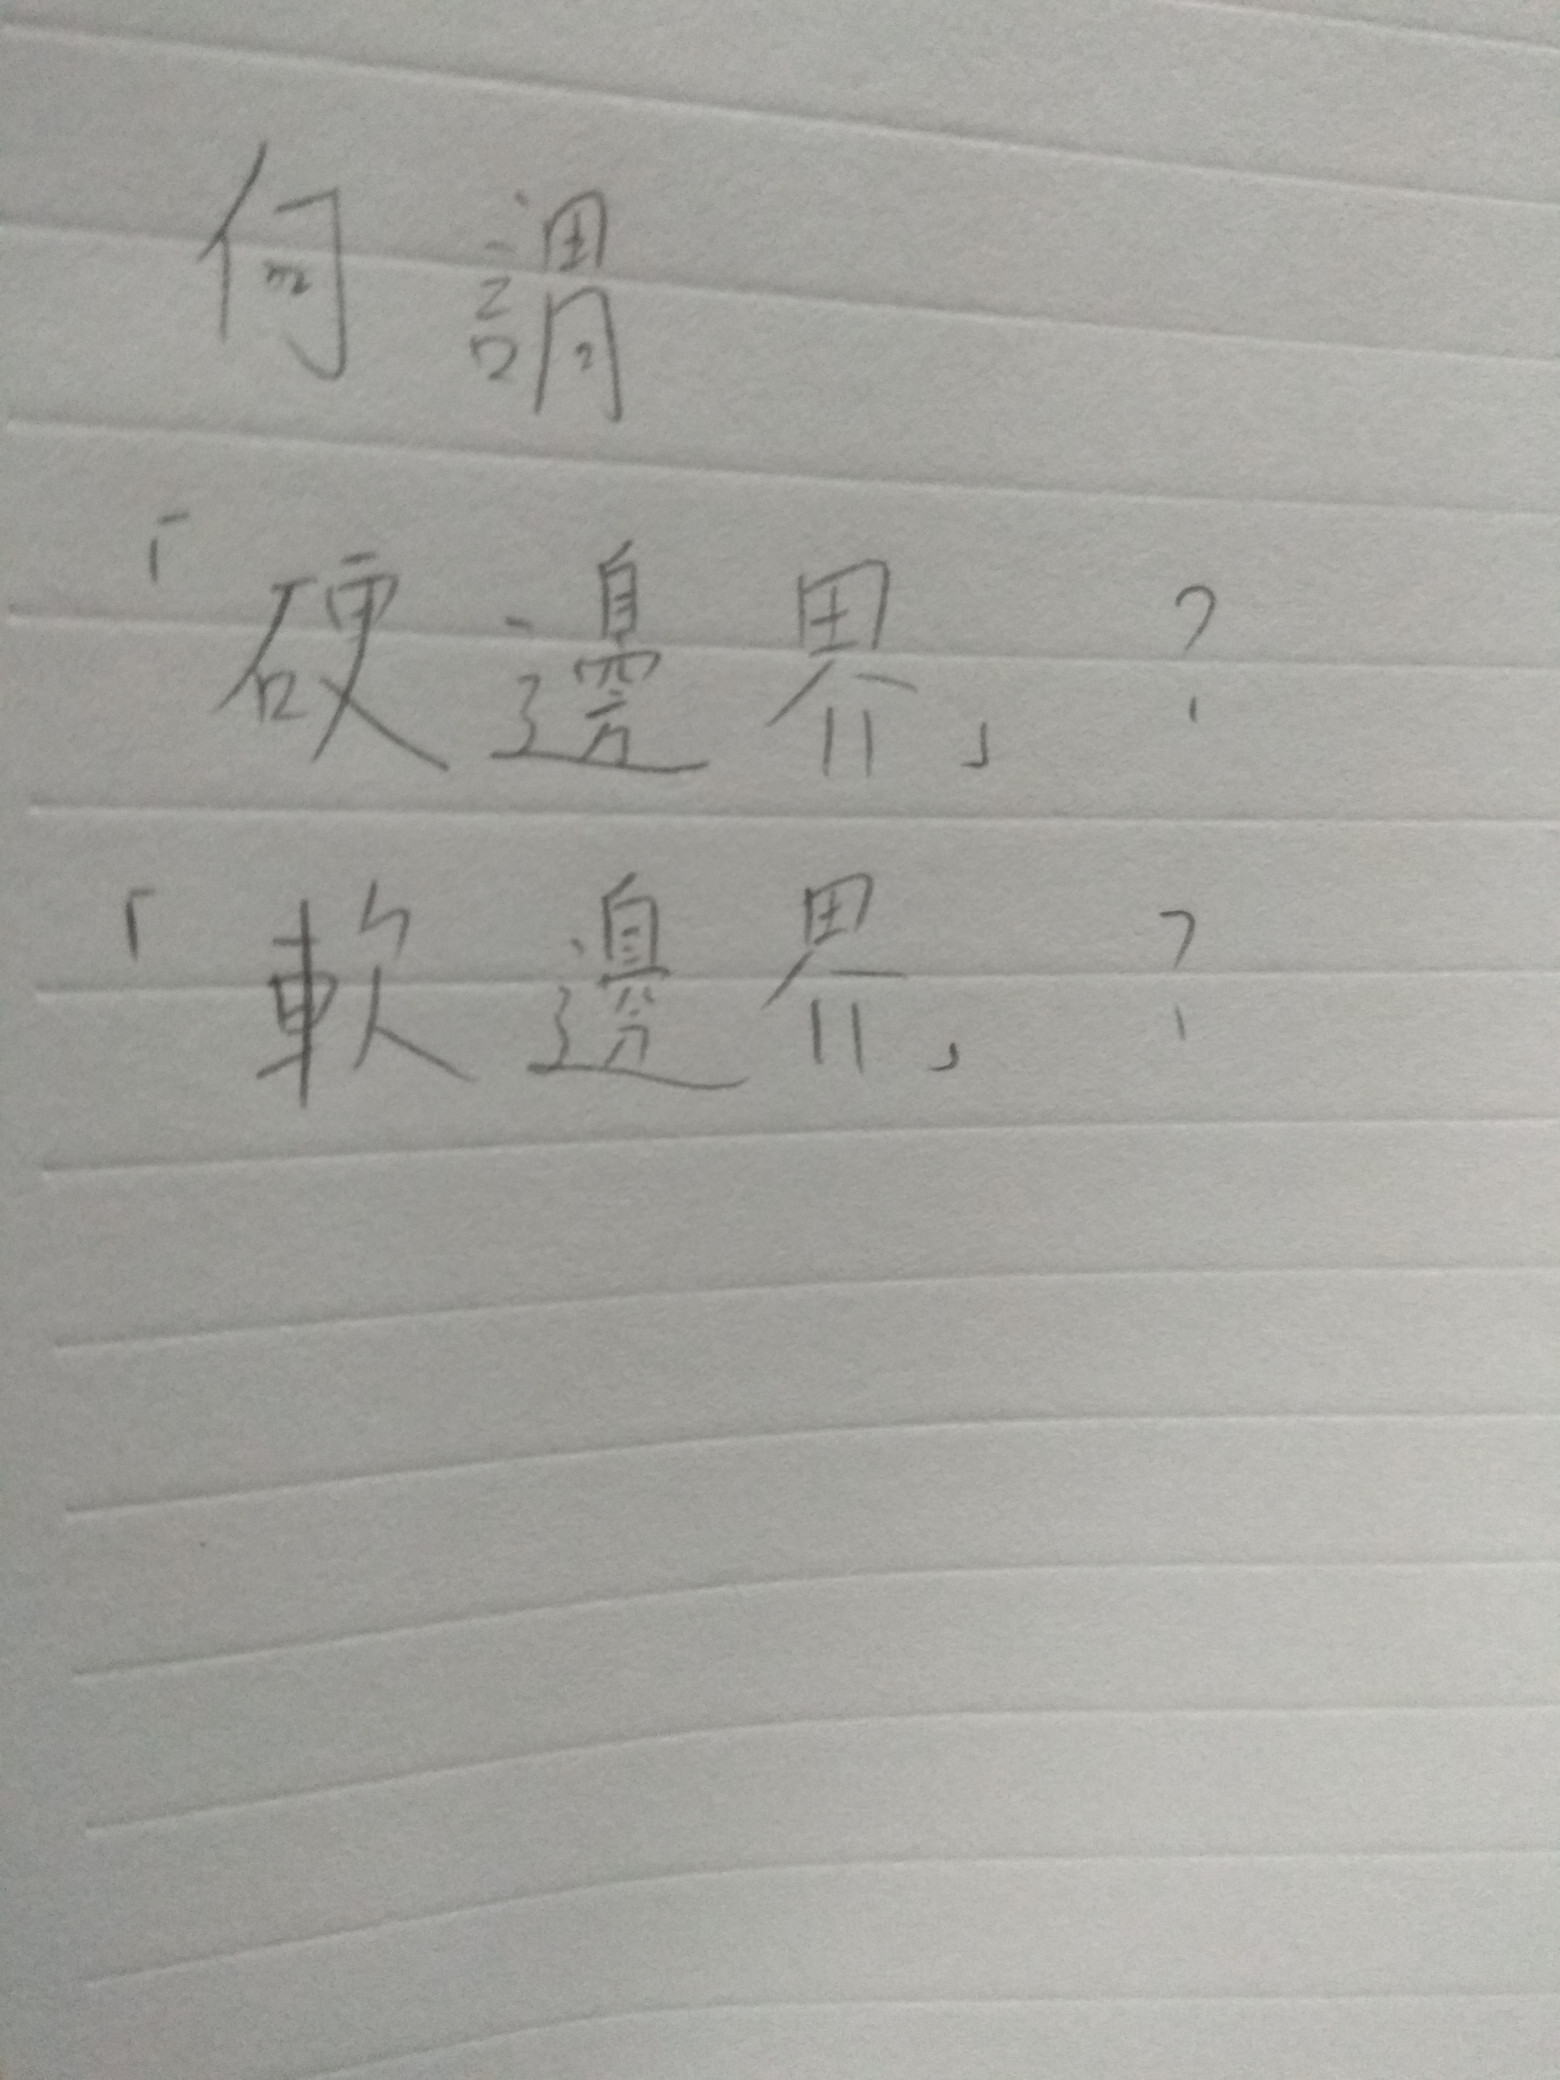 何謂
「硬邊界」?
「軟邊界」?